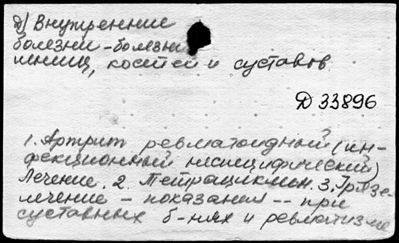 д) Внутренние
болезни - болезни
мышц, костей и суставов
Д 33896
1. Артрит ревматоидный (ин-
фекционный неспецифический)
Лечение. 2. Тетрациклин. 3. Грязе-
лечение - показания -- при
суставных б-нях и ревматизме